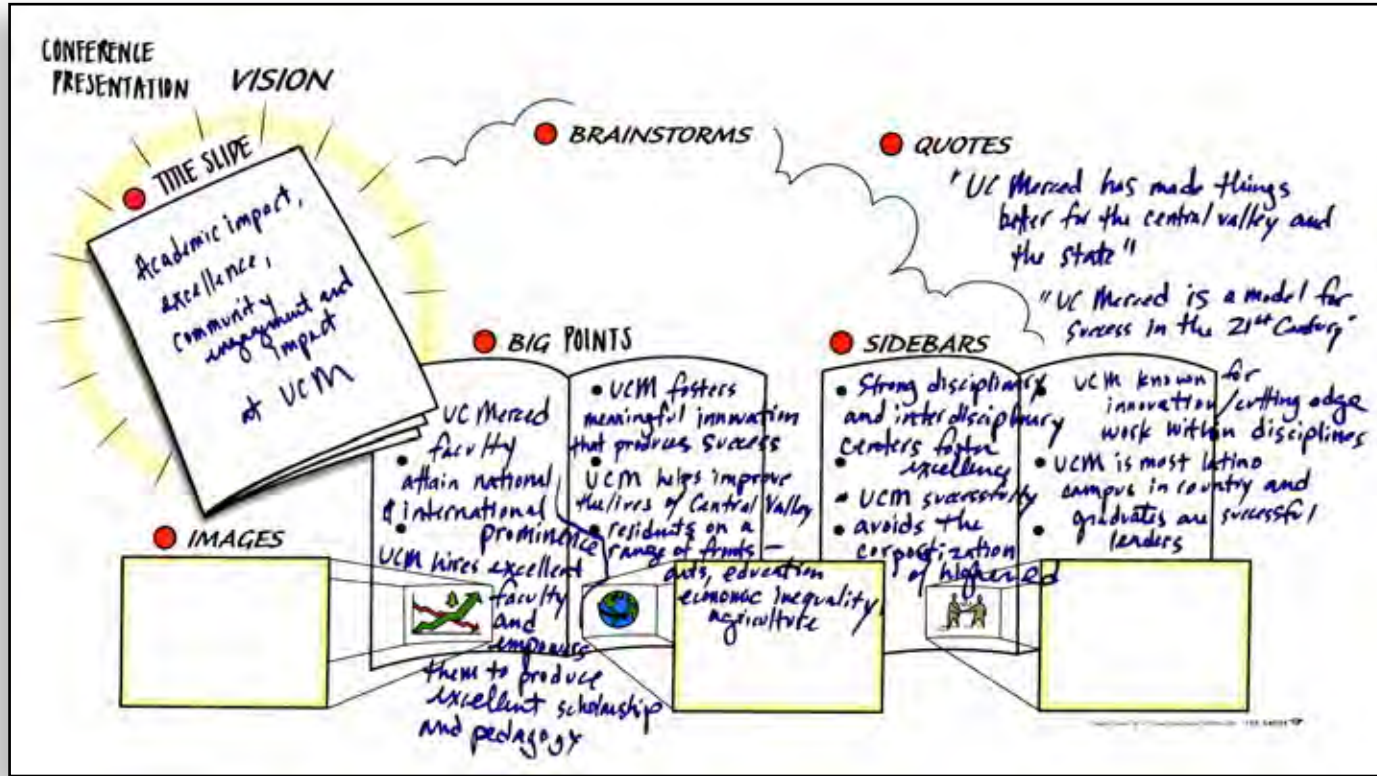 CONFERENCE
PRESENTATION
VISION
TITLE SLIDE
Academic impact,
excellence,
community
engagement and
impact
at UCM
BRAINSTORMS
QUOTES
"UC Merced has made things
better for the central valley and
the state"
"UC Merced is a model for
success in the 21st Century"
BIG POINTS
UC Merced
faculty
attain national
& international
prominence
UCM hires excellent
faculty
and
empowers
them to produce
excellent scholarship
and pedagogy
• UCM fosters
meaningful innovation
that produces success
UCM helps improve
the lives of Central Valley
• residents on a
range of fronts –
arts, education
economic inequality,
agriculture
SIDEBARS
• Strong disciplinary
and interdisciplinary
centers foster
excellence
• UCM successfully
• avoids the
of higher ed
UCM known for
innovation/cutting edge
work within disciplines
• UCM is most latino
campus in country and
graduates are successful
leaders
IMAGES